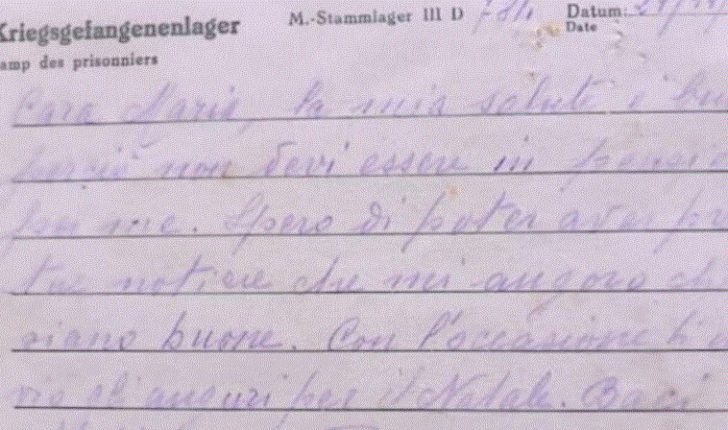 Kriegsgefangenenlager M.-Stammlager III D Datum:
amp des prisonniers Date
Cara Maria, la mia salute è bu
perciò non devi essere in pensie
per me. Spero di poter aver pr
tue notizie che mi auguro ch
siano buone. Con l'occasione t'
vio gl'auguri per il Natale. Baci